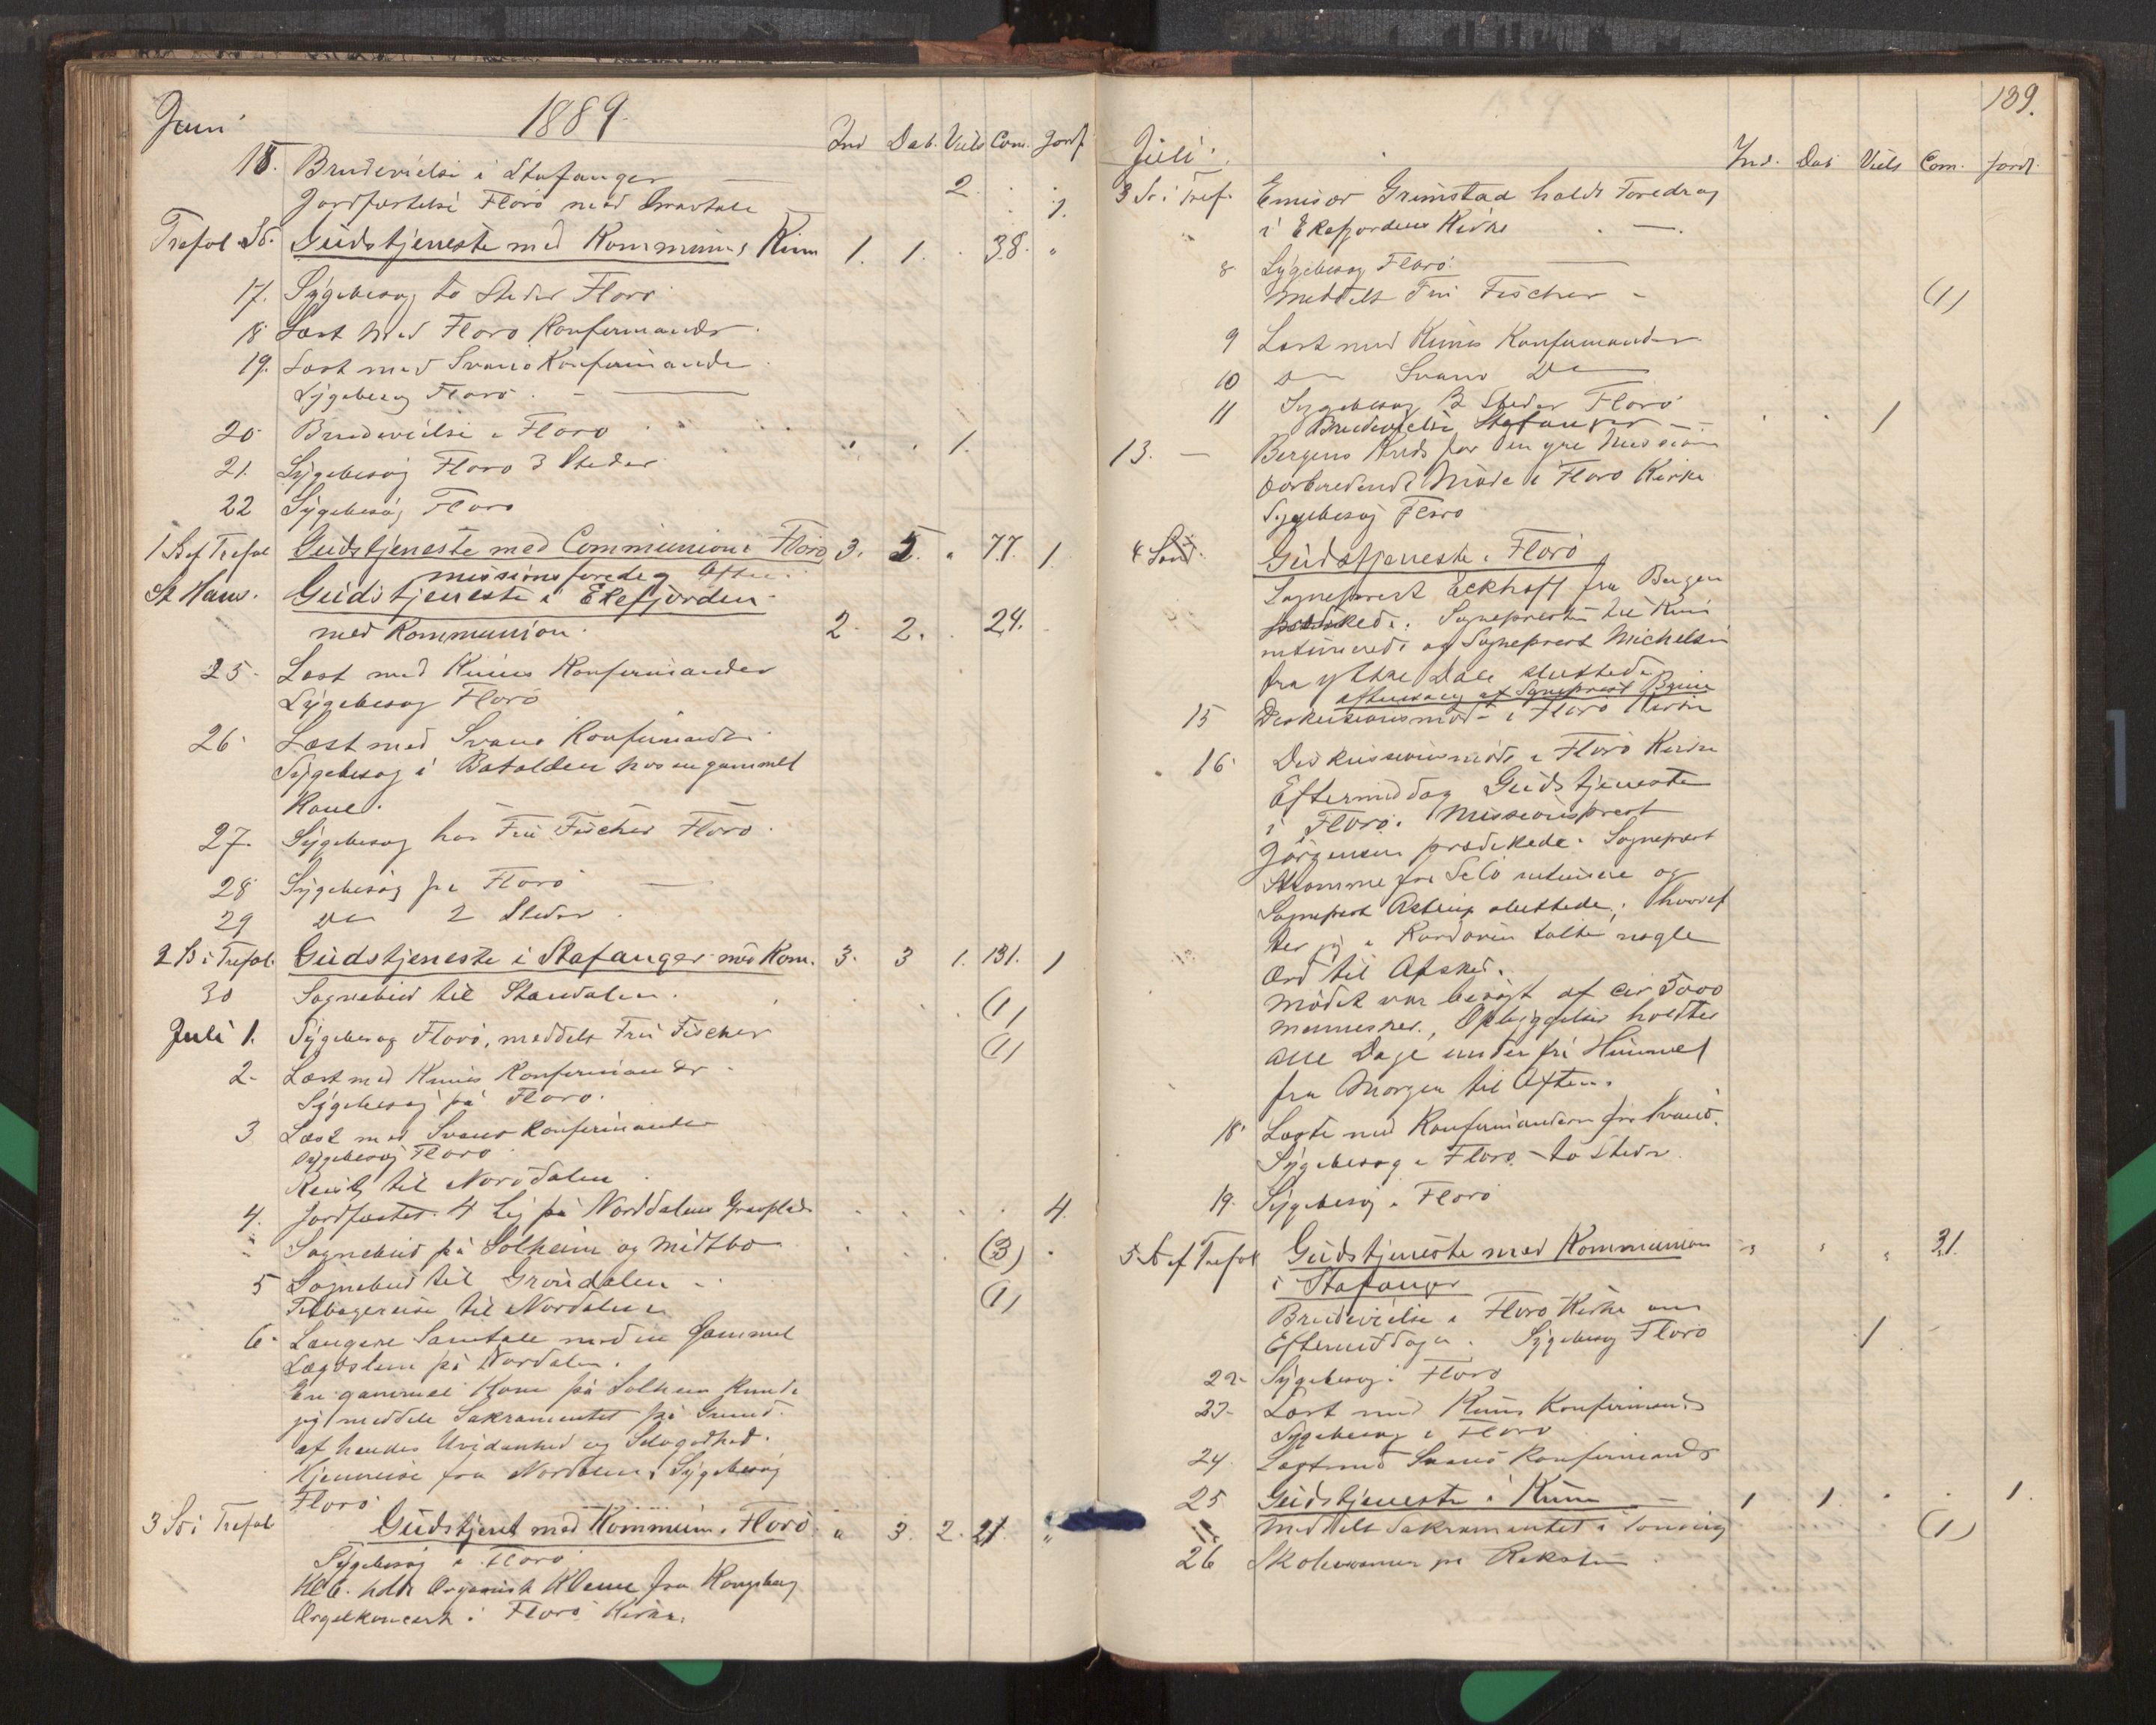 Juni 1889. Ind Dab. Viels Com. Jordf
15. Brudevielse i Stafanger 2.
Jordfæstelse Florö med Gravtale 1.
Trefol. Sö. Gudstjeneste med Kommunion, Kinn 1. 1. 38. "
17. Sygebesög to Steder Florö
18 Læst med Florö Konfirmander.
19. Læst med Svanö Konfirmander
Sygebesög Florö.
20 Brudevielse i Florö 1.
21. Sygebesög Florö 3 Steder
22 Sygebesög Florö
1 S. ef Trefol Gudstjeneste med Communion i Florö 3. 5. " 77. 1
missionsforedrag Aften.
St Hans. Gudstjeneste i Ekefjorden
med Kommunion. 2. 2. 24.
25. Læst med Kinns Konfirmander
Sygebesög Florö
26. Læst med Svanö Konfirmander
Sygebesög i Batalden hos en gammel
Kone.
27. Sygebesög hos Fru Fischer Florö.
28 Sygebesög på Florö
29 Do 2 Steder.
2 S i Trefol. Gudstjeneste i Stafanger med Kom. 3. 3 1. 131. 1
30 Sognebud til Standalen. (1)
Juli 1. Sygebesög Florö, meddelt Fru Fischer (1)
2. Læst med Kinns Konfirmander.
Sygebesög på Florö.
3 Læst med Svanö Konfirmander
Sygebesög Florö
Reist til Nordalen
4. Jordfæstet 4 Lig på Norddalens Gravplads 4.
" Sognebud på Solheim og Midtbö (3)
5 Sognebud til Gröndalen (1)
Tilbagereise til Nordalen
6. Længere Samtale med en Gammel
Lægdslem på Nordalen.
En gammel Kone på Solheim kunde
jeg meddele Sakramentet på Grund
af hendes Uvidenhed og Selvgodhed.
Hjemreise fra Nordalen, Sygebesög
Florö.
3 Sö i Trefol Gudstjenst med Kommunion, Florö " 3. 2. 21. "
Sygebesög i Florö
Kl 6. holdt Organist fra Kongsberg
Orgelkoncert i Florö Kirke.
139.
Juli. Ind. Dab Viels Com. Jordf.
3 Sö i Tref. Emisær Grimstad holdt Foredrag
i Ekefjordens Kirke
8 Sygebesög Florö.
Meddelt Fru Fischer (1)
9 Læst med Kinns Konfirmander.
10 Do Svanö Do
11 Sygebesög 2 Steder Florö
Brudevielse Stafanger 1
13. Bergens Kreds for den ydre Mission
forberedende Möde i Florö Kirke
Sygebesög Florö
4 Sönd. Gudstjeneste i Florö
Sogneprest Eckhoff fra Bergen
prædikede. Sognepresten til Kinn
intimerede og Sogneprest Michelsen
fra Ytre Dale sluttede
aftensang af Sogneprest
15 Diskussionsmöde i Florö Kirke
16. Diskussionsmöde i Florö Kirke
Eftermiddag Gudstjeneste
i Florö. Missionsprest
Jörgensen prædikede. Sogneprest
Stromme fra Selö intimerede og
Sogneprest Astrup sluttede, hvoref
ter jeg i Kordören talte nogle
Ord til Afsked.
Mödet var besögt af cir 5000
mennesker, Opbyggelser holdtes
alle Dage under fri Himmel
fra Morgen til Aften.
18. Læste med Konfirmanderne fra Svanö.
Sygebesög i Florö - to Steder.
19. Sygebesög i Florö
5 S. ef Trefol Gudstjeneste med Kommunion " " " 31.
i Stafanger
Brudevielse i Florö Kirke om
Eftermiddagen. Sygebesög Florö 1
22. Sygebesög i Florö
23. Læst med Kinns Konfirmander
Sygebesög i Florö
24. Læst med Svanö Konfirmander
25 Gudstjeneste i Kinn 1 1. 1.
" Meddelt Sakramentet i (1)
26 Skoleexamen på Reksten